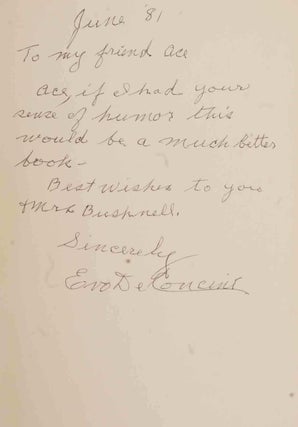 June '81
To my friend Ace
Ace, if I had your
sense of humor this
would be a much better
book-
Best Wishes to you
& Mrs Bushnell.
Sincerely
Evo DeConcini